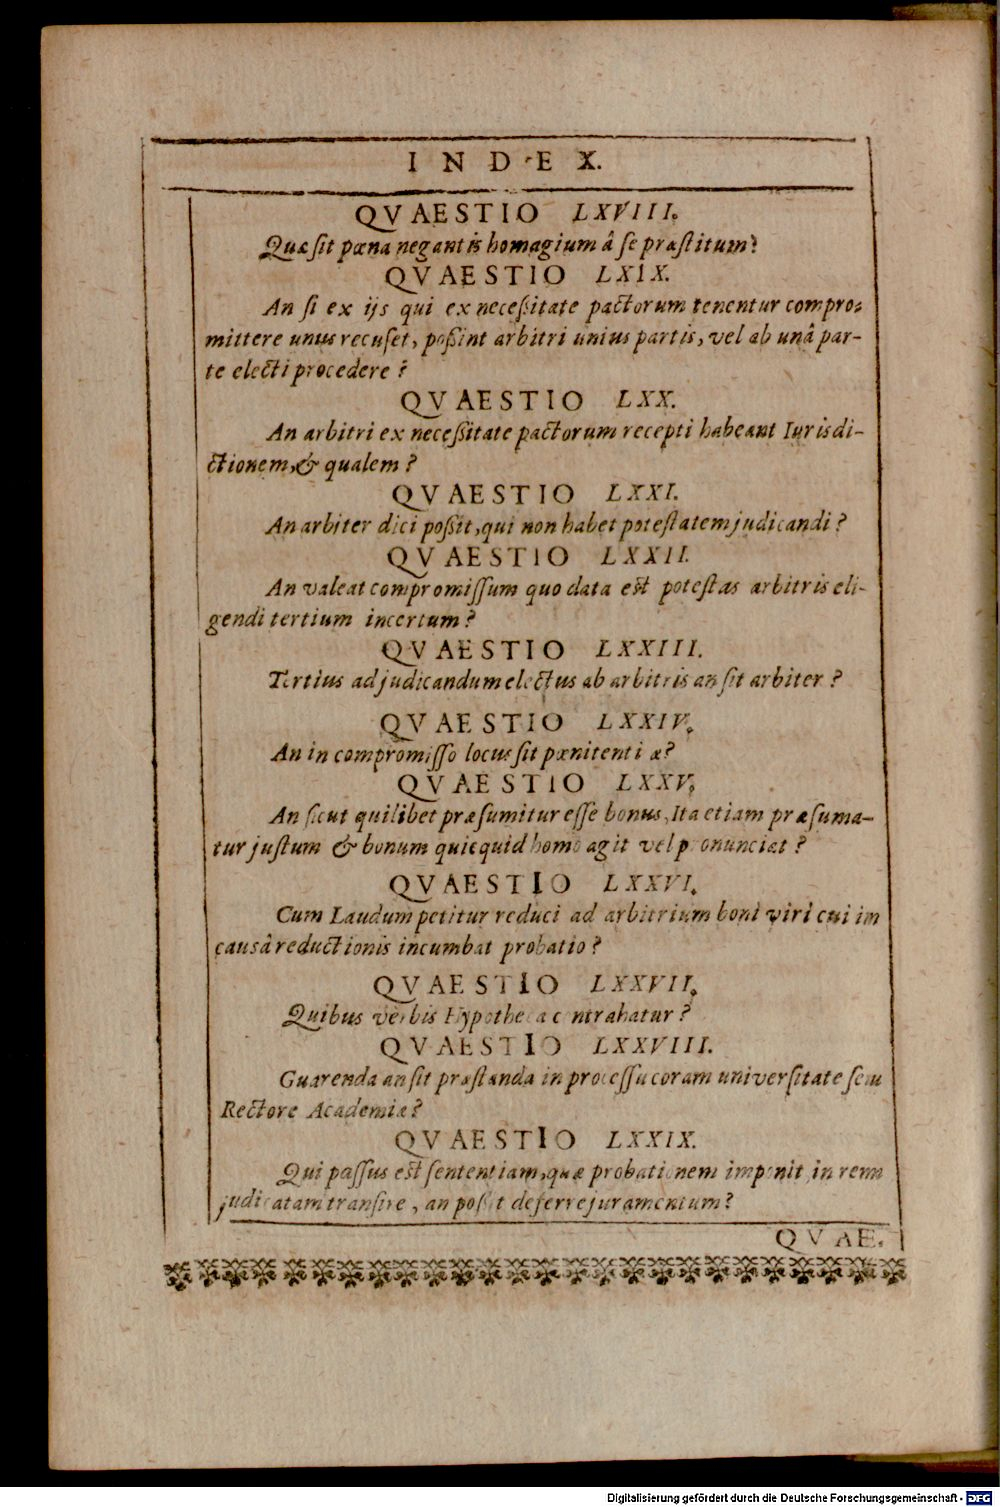 INDEX.
QVAESTIO LXVIII.
Quæ sit pœna negantis homagium â se præstitum?
QVAESTIO LXIX.
An si ex ijs qui ex necessitate pactorum tenentur compro-
mittere unus recuset, possint arbitri unius partis, vel ab unâ par-
te electi procedere?
QVAESTIO LXX.
An arbitri ex necessitate pactorum recepti habeant Iurisdi-
ctionem, & qualem?
QVAESTIO LXXI.
An arbiter dici possit, qui non habet potestatem judicandi?
QVAESTIO LXXII.
An valeat compromissum quo data est potestas arbitris eli-
gendi tertium incertum?
QVAESTIO LXXIII.
Tertius ad judicandum electus ab arbitris an sit arbiter?
QVAESTIO LXXIV.
An in compromisso locus sit pœnitentiæ?
QVAESTIO LXXV.
An sicut quilibet præsumitur esse bonus, Ita etiam præsuma-
tur justum & bonum quicquid homo agit vel pronunciat?
QVAESTIO LXXVI.
Cum Laudum petitur reduci ad arbitrium boni viri cui in
causâ reductionis incumbat probatio?
QVAESTIO LXXVII.
Quibus verbis Hypotheca contrahatur?
QVAESTIO LXXVIII.
Guarenda an sit præstanda in processu coram universitate seu
Rectore Academiæ?
QVAESTIO LXXIX.
Qui passus est sententiam, quæ probationem imponit, in rem
judicatam transire, an possit deferre juramentum?
QVAE.
Digitalisierung gefördert durch die Deutsche Forschungsgemeinschaft - DFG